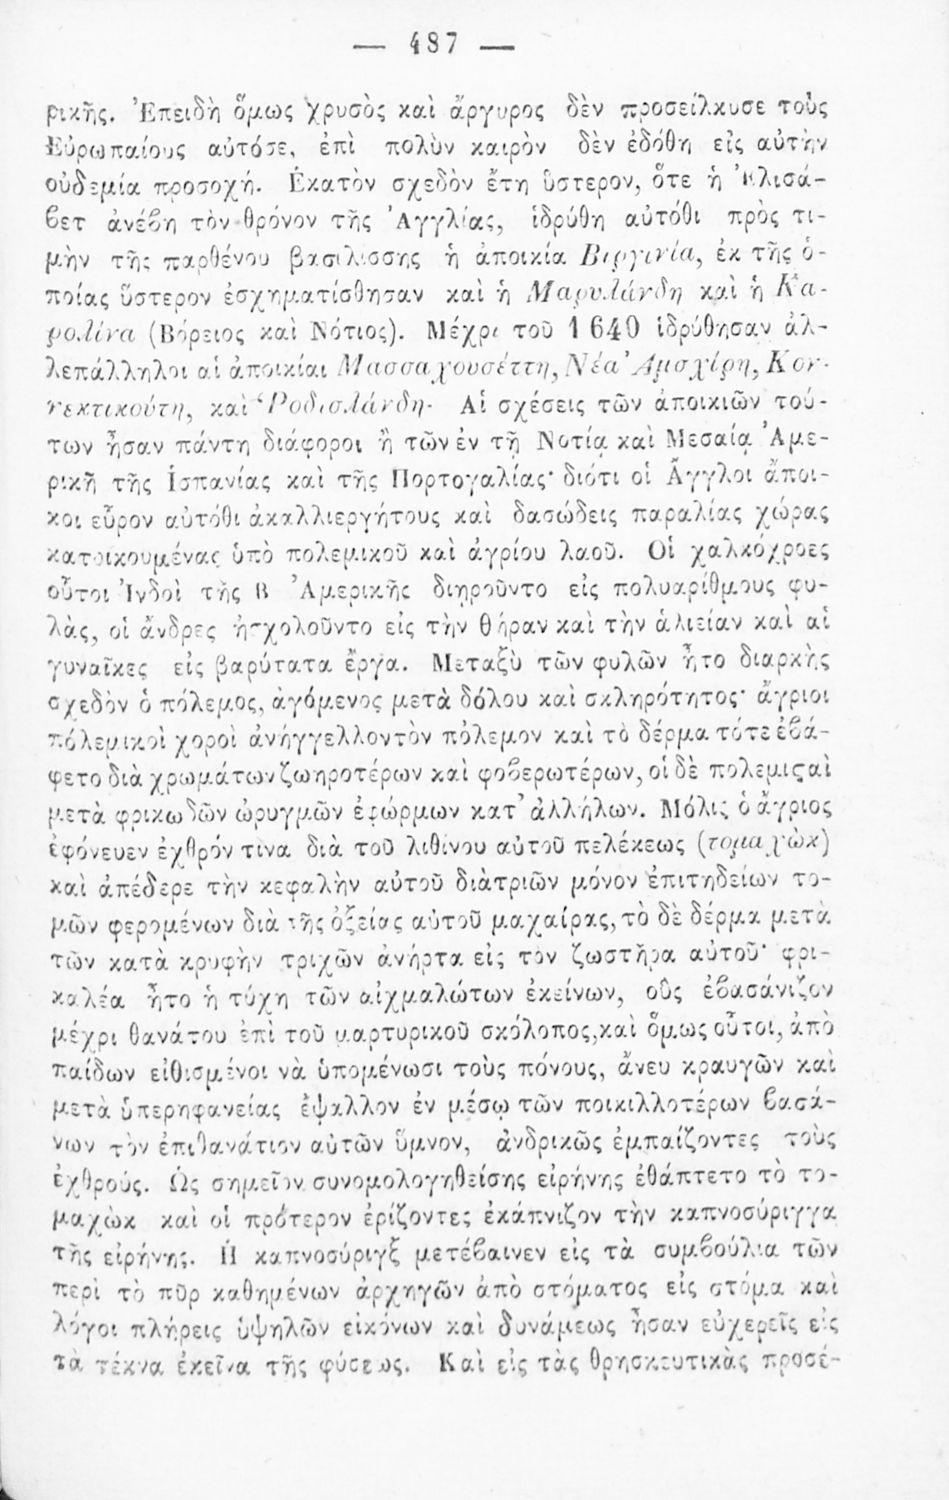 — 487 —
ρικῆς. Ἐπειδὴ ὅμως χρυσὸς καὶ ἄργυρος δὲν προσείλκυσε τοὺς
Εὐρωπαίους αὐτόσε, ἐπὶ πολὺν καιρὸν δὲν ἐδόθη εἰς αὐτὴν
οὐδεμία προσοχή. Ἑκατὸν σχεδὸν ἔτη ὕστερον, ὅτε ἡ Ἐλισά-
βετ ἀνέβη τὸν θρόνον τῆς Ἀγγλίας, ἱδρύθη αὐτόθι πρὸς τι-
μὴν τῆς παρθένου βασιλίσσης ἡ ἀποικία Βιργινία, ἐκ τῆς ὁ-
ποίας ὕστερον ἐσχηματίσθησαν καὶ ἡ Μαρυλάνδη καὶ ἡ Κα-
ρολίνα (Βόρειος καὶ Νότιος). Μέχρι τοῦ 1640 ἱδρύθησαν ἀλ-
λεπάλληλοι αἱ ἀποικίαι Μασσαχουσέττη, Νέα Ἀμσχίρη, Κον-
νεκτικούτη, καὶ Ῥοδισλάνδη· Αἱ σχέσεις τῶν ἀποικιῶν τού-
των ἦσαν πάντη διάφοροι ἢ τῶν ἐν τῇ Νοτίᾳ καὶ Μεσαίᾳ Ἀμε-
ρικῇ τῆς Ἱσπανίας καὶ τῆς Πορτογαλίας· διότι οἱ Ἄγγλοι ἄποι-
κοι εὗρον αὐτόθι ἀκαλλιεργήτους καὶ δασώδεις παραλίας χώρας
κατοικουμένας ὑπὸ πολεμικοῦ καὶ ἀγρίου λαοῦ. Οἱ χαλκόχροες
οὗτοι Ἰνδοὶ τῆς Β Ἀμερικῆς διῃροῦντο εἰς πολυαρίθμους φυ-
λὰς, οἱ ἄνδρες ἠσχολοῦντο εἰς τὴν θήραν καὶ τὴν ἁλιείαν καὶ αἱ
γυναῖκες εἰς βαρύτατα ἔργα. Μεταξὺ τῶν φυλῶν ἦτο διαρκὴς
σχεδὸν ὁ πόλεμος, ἀγόμενος μετὰ δόλου καὶ σκληρότητος· ἄγριοι
πόλεμικοὶ χοροὶ ἀνήγγελλον τὸν πόλεμον καὶ τὸ δέρμα τότε ἐβά-
φετο διὰ χρωμάτων ζωηροτέρων καὶ φοβερωτέρων, οἱ δὲ πολεμισταὶ
μετὰ φρικωδῶν ὠρυγμῶν ἐφώρμων κατ' ἀλλήλων. Μόλις ὁ ἄγριος
ἐφόνευεν ἐχθρόν τινα διὰ τοῦ λιθίνου αὐτοῦ πελέκεως (τομαχὼκ)
καὶ ἀπέδερε τὴν κεφαλὴν αὐτοῦ διὰ τριῶν μόνον ἐπιτηδείων το-
μῶν φερομένων διὰ τῆς ὀξείας αὐτοῦ μαχαίρας, τὸ δὲ δέρμα μετὰ
τῶν κατὰ κρυφὴν τριχῶν ἀνήρτα εἰς τὸν ζωστῆρα αὐτοῦ· φρι-
καλέα ἦτο ἡ τύχη τῶν αἰχμαλώτων ἐκείνων, οὓς ἐβασάνιζον
μέχρι θανάτου ἐπὶ τοῦ μαρτυρικοῦ σκόλοπος, καὶ ὅμως οὗτοι, ἀπὸ
παίδων εἰθισμένοι νὰ ὑπομένωσι τοὺς πόνους, ἄνευ κραυγῶν καὶ
μετὰ ὑπερηφανείας ἔψαλλον ἐν μέσῳ τῶν ποικιλλοτέρων βασά-
νων τὸν ἐπιθανάτιον αὐτῶν ὕμνον, ἀνδρικῶς ἐμπαίζοντες τοὺς
ἐχθρούς. Ὡς σημεῖον συνομολογηθείσης εἰρήνης ἐθάπτετο τὸ το-
μαχὼκ καὶ οἱ πρότερον ἐρίζοντες ἐκάπνιζον τὴν καπνοσύριγγα
τῆς εἰρήνης. Ἡ καπνοσύριγξ μετέβαινεν εἰς τὰ συμβούλια τῶν
περὶ τὸ πῦρ καθημένων ἀρχηγῶν ἀπὸ στόματος εἰς στόμα καὶ
λόγοι πλήρεις ὑψηλῶν εἰκόνων καὶ δυνάμεως ἦσαν εὐχερεῖς εἰς
τὰ τέκνα ἐκεῖνα τῆς φύσεως. Καὶ εἰς τὰς θρησκευτικὰς προσέ-